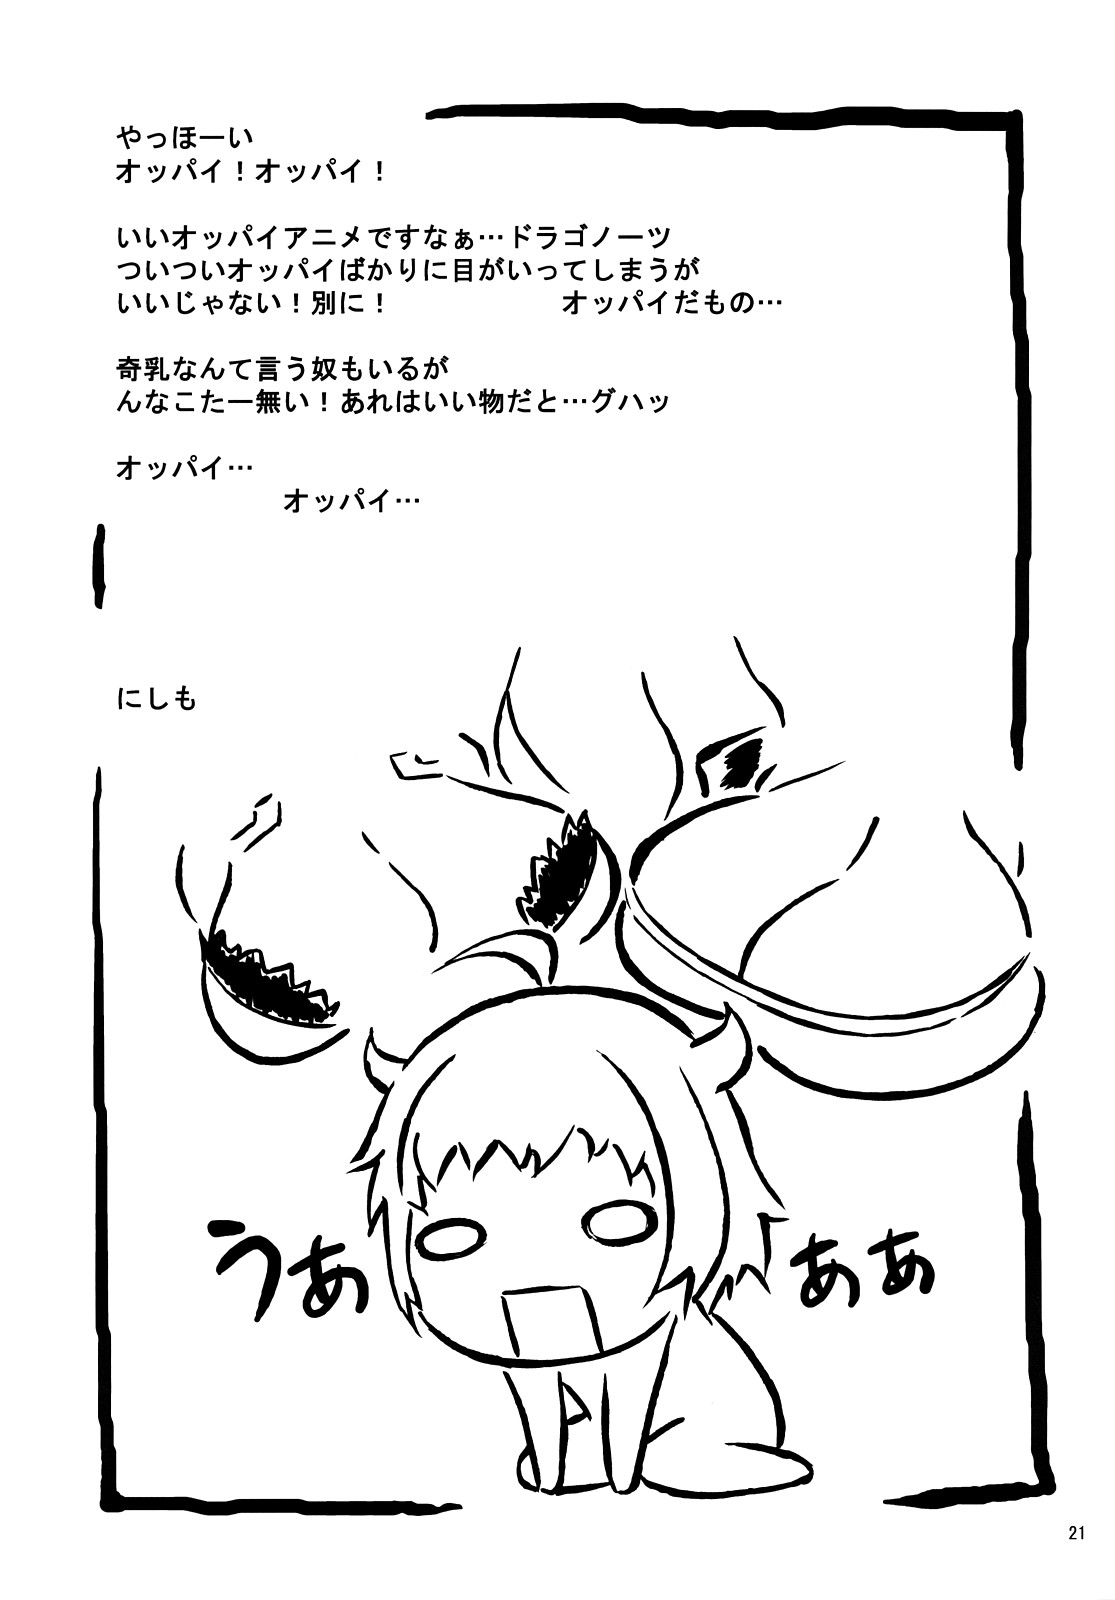 やっほーい
オッパイ！オッパイ！
いいオッパイアニメですなぁ…ドラゴノーツ
ついついオッパイばかりに目がいってしまうが
いいじゃない！別に！　　　　　　オッパイだもの…
奇乳なんて言う奴もいるが
んなこたー無い！あれはいい物だと…グハッ
オッパイ…
オッパイ…
にしも
うぁ
ぁぁ
21